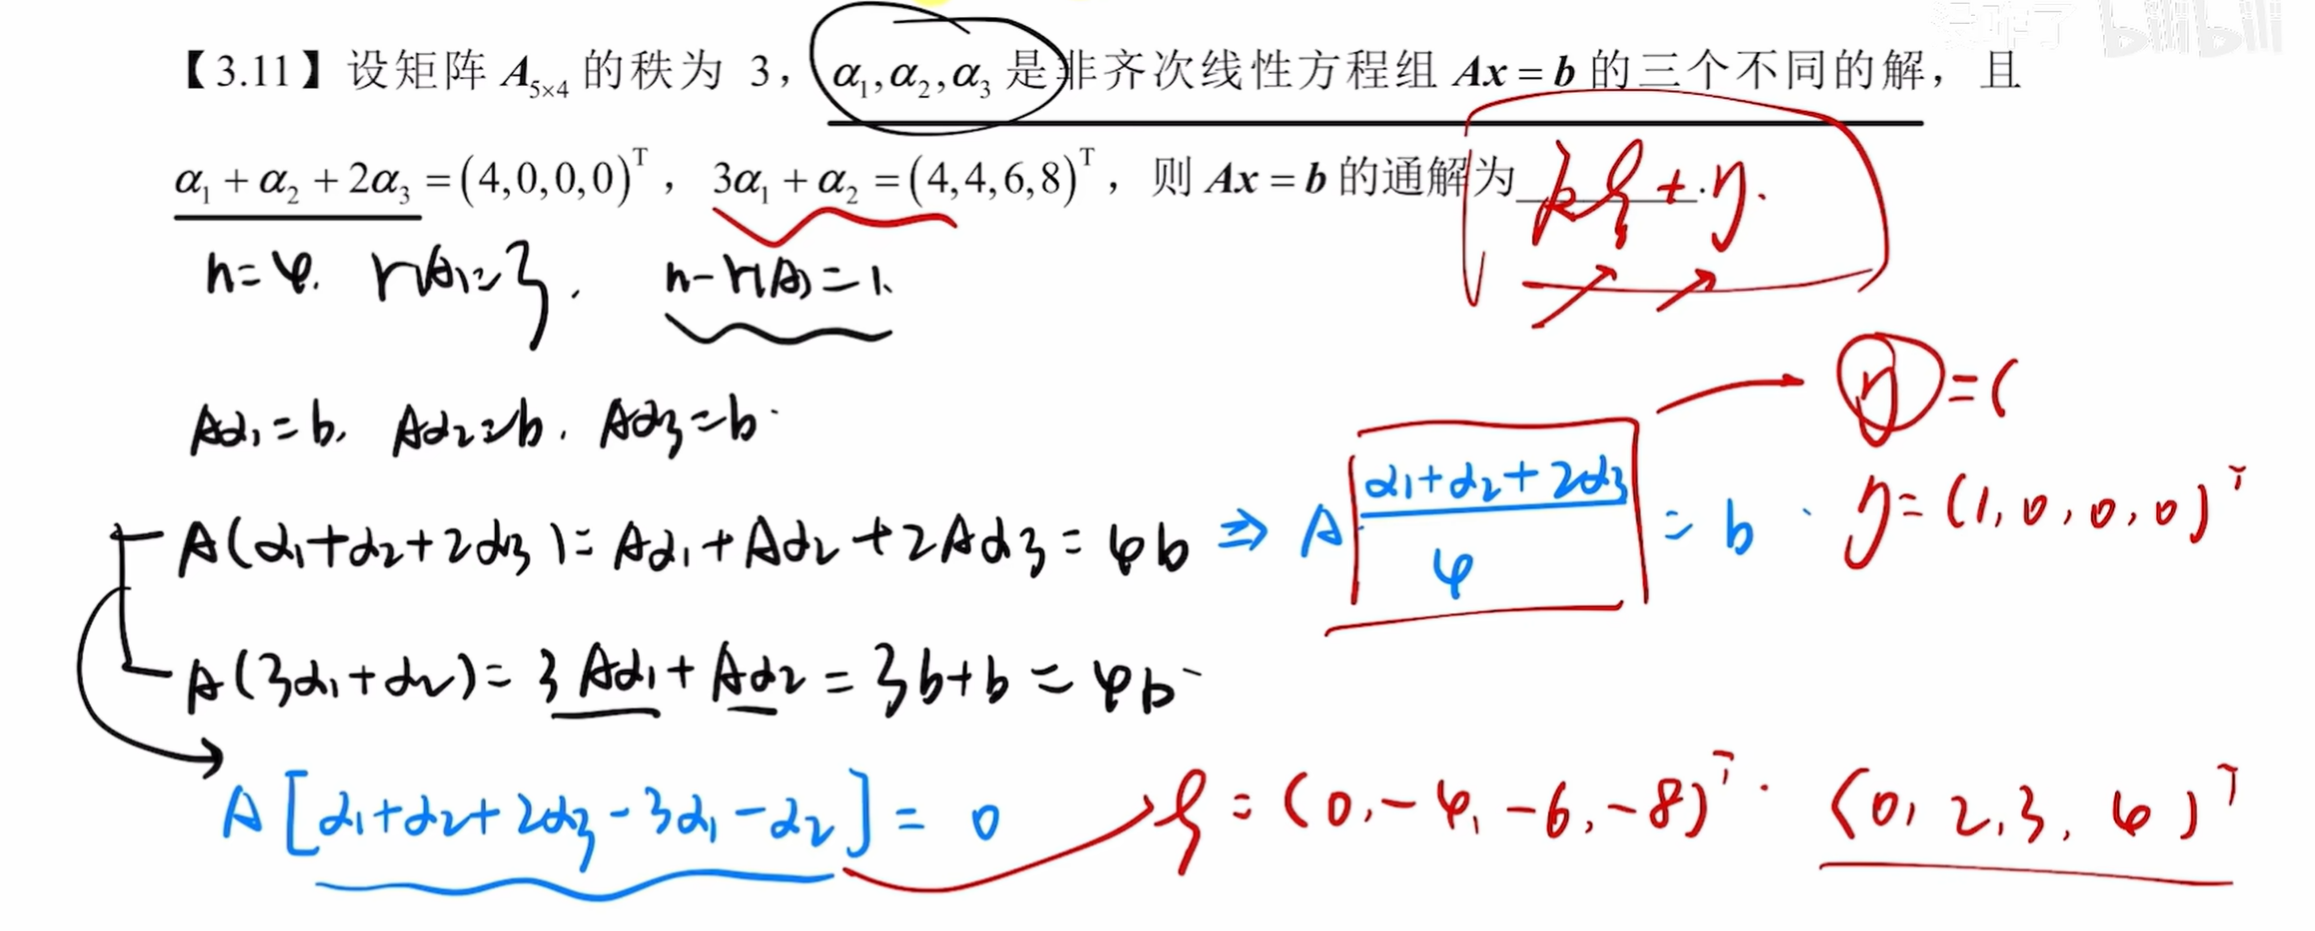 bilibili
【3.11】设矩阵 A₅ₓ₄ 的秩为 3，α₁,α₂,α₃ 是非齐次线性方程组 Ax = b 的三个不同的解，且
α₁ + α₂ + 2α₃ = (4,0,0,0)ᵀ，3α₁ + α₂ = (4,4,6,8)ᵀ，则 Ax = b 的通解为________.
kξ + η.
n=4. r(A)=3. n-r(A)=1.
η=(
Aα₁=b, Aα₂=b. Aα₃=b.
A(α₁+α₂+2α₃)=Aα₁+Aα₂+2Aα₃=4b ⇒ A (α₁+α₂+2α₃)/4 = b. η=(1,0,0,0)ᵀ
A(3α₁+α₂)=3Aα₁+Aα₂=3b+b=4b
A[α₁+α₂+2α₃-3α₁-α₂]=0 ξ=(0,-4,-6,-8)ᵀ. (0,2,3,4)ᵀ